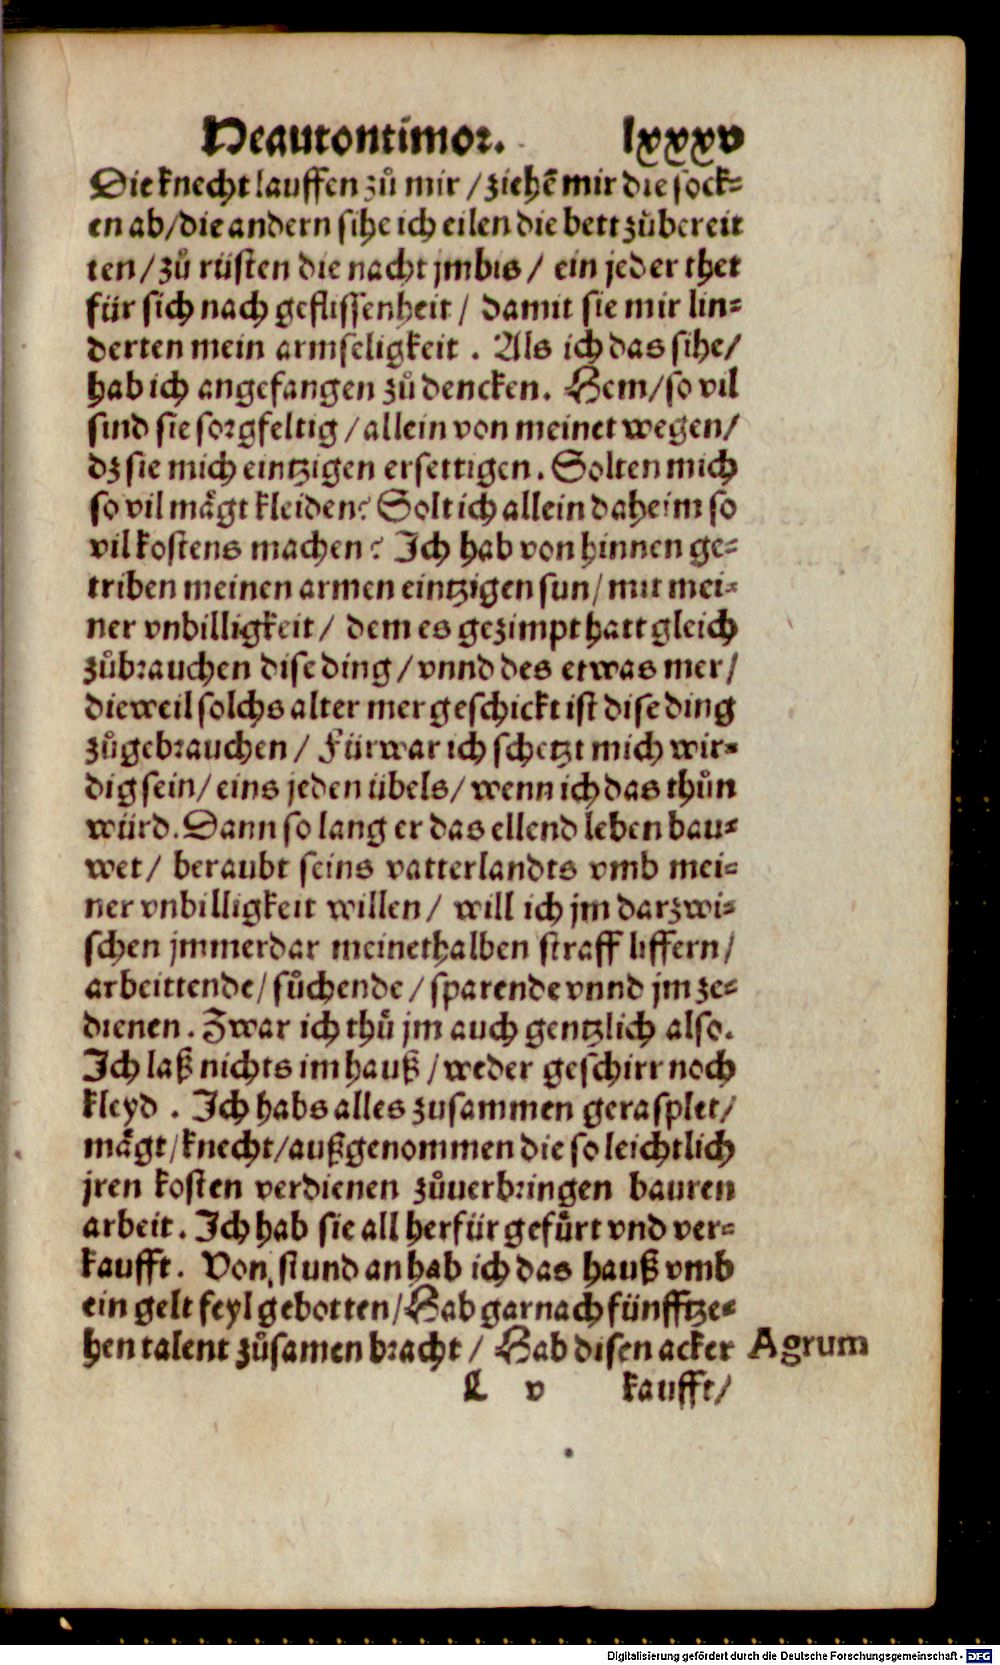 Heautontimor. lxxxv
Die knecht lauffen zů mir / ziehē mir die sock=
en ab / die andern sihe ich eilen die bett zůbereit
ten / zů rüsten die nacht jmbis / ein jeder thet
für sich nach geflissenheit / damit sie mir lin=
derten mein armseligkeit . Als ich das sihe /
hab ich angefangen zů dencken. Hem / so vil
sind sie sorgfeltig / allein von meinet wegen /
dz sie mich eintzigen ersettigen. Solten mich
so vil mågt kleiden? Solt ich allein daheim so
vil kostens machen? Ich hab von hinnen ge=
triben meinen armen eintzigen sun / mit mei=
ner vnbilligkeit / dem es gezimpt hatt gleich
zůbrauchen dise ding / vnnd des etwas mer /
dieweil solchs alter mer geschickt ist dise ding
zůgebrauchen / Fürwar ich schetzt mich wir=
dig sein / eins jeden übels / wenn ich das thůn
würd. Dann so lang er das ellend leben bau=
wet / beraubt seins vatterlandts vmb mei=
ner vnbilligkeit willen / will ich jm darzwi=
schen jmmerdar meinethalben straff liffern /
arbeittende / sůchende / sparende vnnd jm ze=
dienen. Zwar ich thů jm auch gentzlich also.
Ich laß nichts im hauß / weder geschirr noch
kleyd . Ich habs alles zusammen gerasplet /
mågt / knecht / außgenommen die so leichtlich
jren kosten verdienen zůuerbringen bauren
arbeit. Ich hab sie all herfür gefůrt vnd ver=
kaufft. Von stund an hab ich das hauß vmb
ein gelt feyl gebotten / Hab gar nach fünfftze=
hen talent zůsamen bracht / Hab disen acker Agrum
L v kaufft /
Digitalisierung gefördert durch die Deutsche Forschungsgemeinschaft - DFG